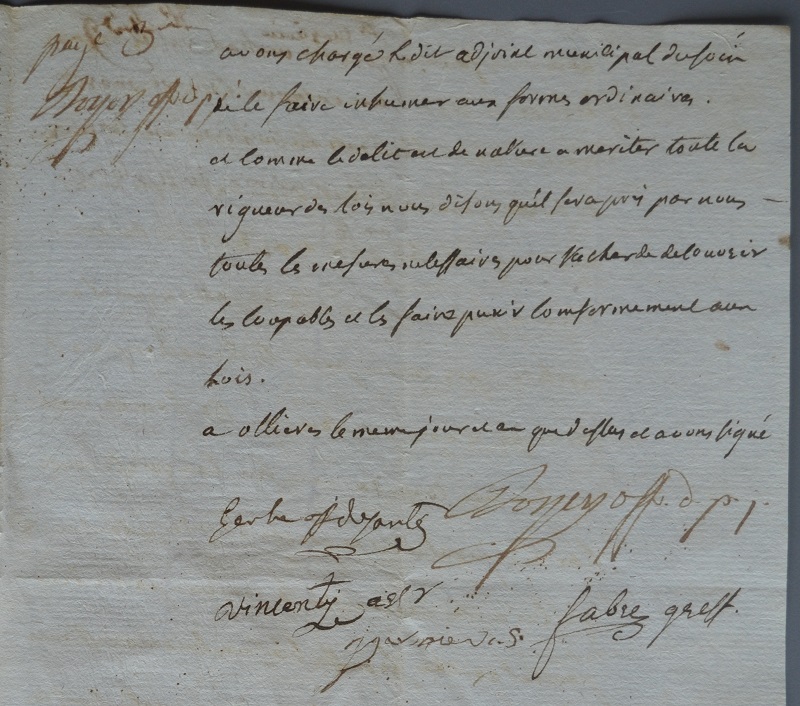 page 3
avons chargé le dit adjoint municipal du soin
de le faire inhumer aux formes ordinaires.
et comme le delit est de nature a meriter toute la
rigueur des lois nous disons qu'il sera pris par nous
toutes les mesures necessaires pour
les coupables et les faire punir conformement aux
Lois.
a ollieres le meme jour et an que dessus et avons signé
off de santé
off. d. p.
vincenty
fabre greff.